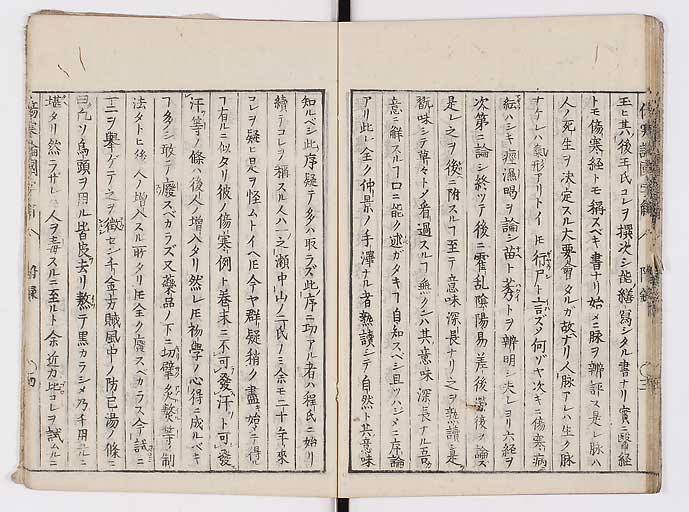 玉ヒ其後王氏コレヲ撰次シ能繕寫シタル書ナリ實ニ醫経
トモ傷寒経トモ稱スベキ書ナリ始メニ脉ヲ辨評ス是レ脉ハ
人ノ死生ヲ決定スル大要會タルガ故ナリ人脉アレハ生ク脉
ナケレハ氣形アリトイヘ𪜈行尸ト言ズメ何ゾヤ次キニ傷寒病ニ
紜ハシキ痙濕暍ヲ論シ苗ト莠トヲ辨明シ夫レヨリ六経ヲ
次第ニ論シ終ツテ後ニ霍乱陰陽易差後労後ノ論ス
是レ之ヲ後ニ附スルフ至テ意味深長ナリ之ヲ熟讀意
翫味シテ草々トメ看過スルフ無クンハ其意味深長ナル吾
意ニ解スルフ口ニ能ク述ガタキフ自知スベシ且ツハジメニ序論
アリ此レ全ク仲景ノ手澤ナル者熟讀シテ自然ト其意味
知ルベシ此序疑テ多ハ取ラズ此序ニ功アル者ハ程氏ノ始リ
續テコレヲ稱スル人ハ一之瀬中山ノ二氏ノミ余モ二十年来
コレヲ疑ヒ是ヲ怪ムトイヘ𪜈今ヤ群疑稍ク盡キ始メテ得ル
フ有ルニ似タリ彼ノ傷寒例ト巻末ニ不可發汗ト可發
汗等ノ條ハ後人ノ増入タリ然レ𪜈初學ノ心得ニ成ルベキ
フ多シ敢テ廢スベカラズ又藥品ノ下ニ切擘炙熬等ノ制
法タトヒ後人ノ増入スル所タリ𪜈全ク廢スベカラス今試ニ
一二ヲ擧ゲテ之ヲ徴センニ千金方賊風中ノ防已湯ノ條ニ
曰凡ソ烏頭ヲ用ル皆皮去リ熬テ黒カラシメ乃チ用ユルニ
堪タリ然ラザレハ人ヲ毒スルニ至ルト余近カ比コレヲ試ムルニ